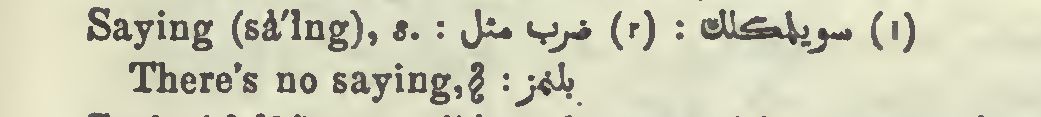 Saying (så'ing), s. : (١) سويلمكلك : (٢) ضرب مثل
There's no saying, : بلنمز